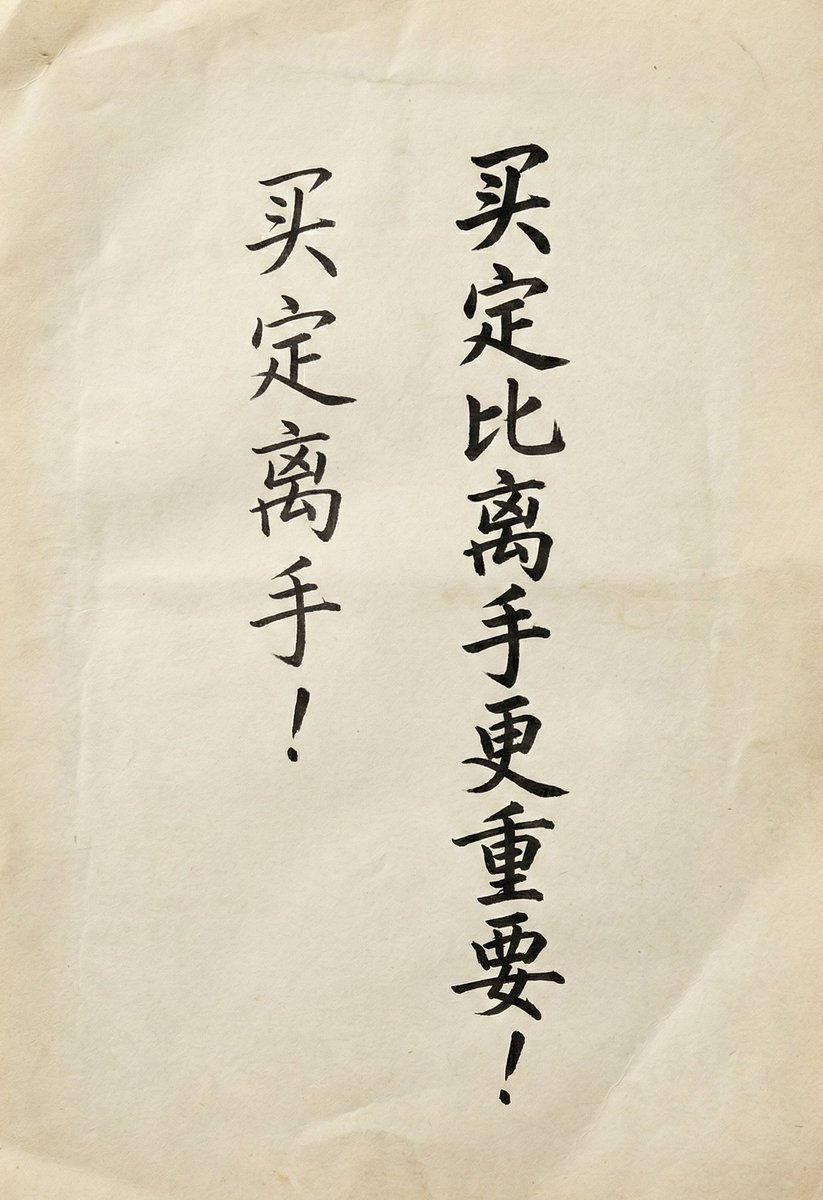 买定比离手更重要！
买定离手！